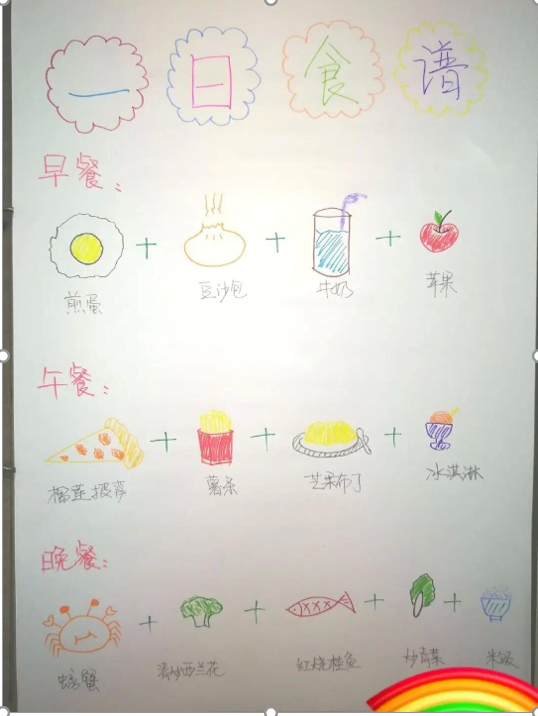 一日食谱
早餐:
+ + +
煎蛋 豆沙包 牛奶 苹果
午餐:
+ + +
榴莲披萨 薯条 芒果布丁 冰淇淋
晚餐:
+ + + +
螃蟹 清炒西兰花 红烧桂鱼 炒青菜 米饭